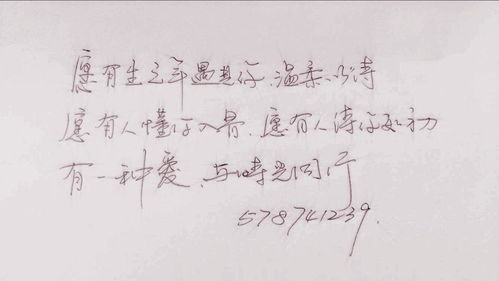 愿有生之年遇其仔温柔以待
愿有人懂仔入骨.愿有人待仔如初
有一种爱.与时光同行
578741239.